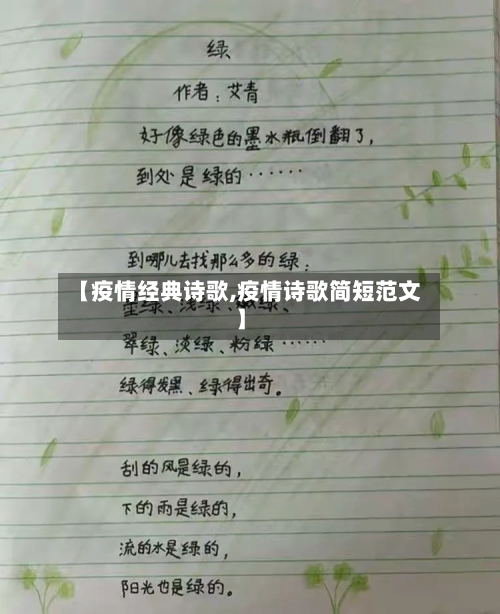 绿
作者：艾青
好像绿色的墨水瓶倒翻了，
到处是绿的······
到哪儿去找那么多的绿：
【疫情经典诗歌,疫情诗歌简短范文
】
墨绿、浅绿、嫩绿、
翠绿、淡绿、粉绿······
绿得发黑、绿得出奇。
刮的风是绿的，
下的雨是绿的，
流的水是绿的，
阳光也是绿的。